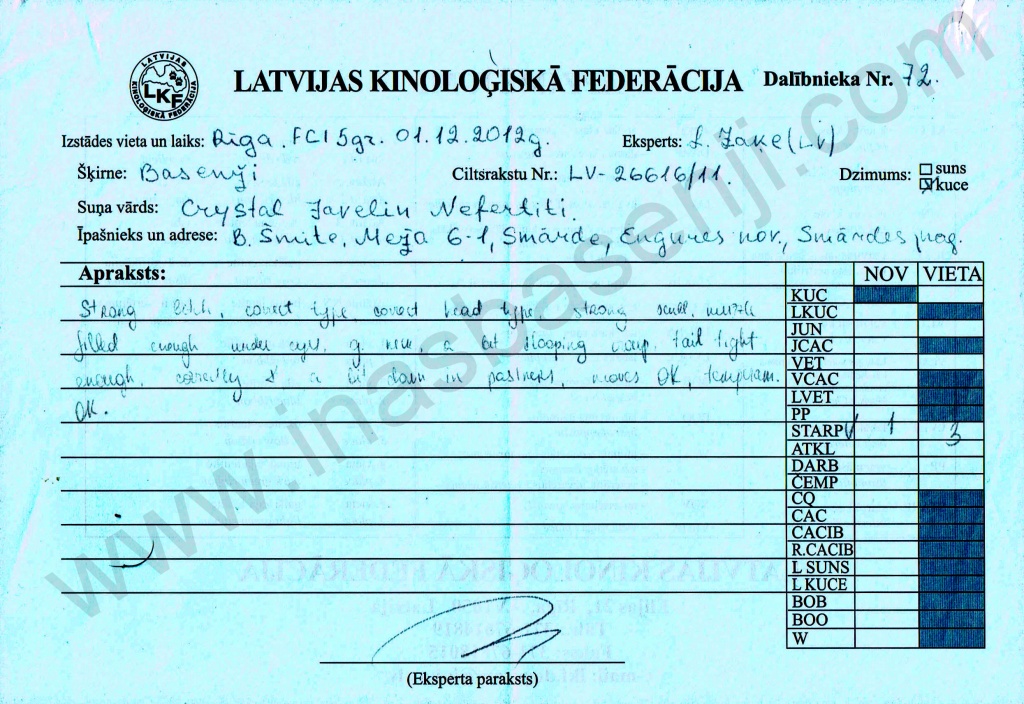 LATVIJAS KINOLOĢISKĀ FEDERĀCIJA Dalībnieka Nr. 72.
LATVIJAS
LKF
KINOLOĢISKĀ FEDERĀCIJA
Izstādes vieta un laiks: Rīga. FCI 5gr. 01.12.2012g. Eksperts: L. Zaķe (LV)
Šķirne: Basenji Ciltsrakstu Nr.: LV-26616/11. Dzimums: suns
kuce
Suņa vārds: Crystal Javelin Nefertiti.
Īpašnieks un adrese: B. Šmite, Meža 6-1, Smārde, Engures nov., Smārdes pag.
Apraksts: NOV VIETA
Strong bitch, correct type, correct head type, strong scull, muzzle
filled enough under eyes, g. neck, a bit slooping croup, tail tight
enough, a bit down in pastners, moves OK, temperam.
OK.
KUC
LKUC
JUN
JCAC
VET
VCAC
LVET
PP
STARP V 1 3
ATKL
DARB
ČEMP
CQ
CAC
CACIB
R.CACIB
L SUNS
L KUCE
BOB
BOO
W
(Eksperta paraksts)
www.inasbasenji.com